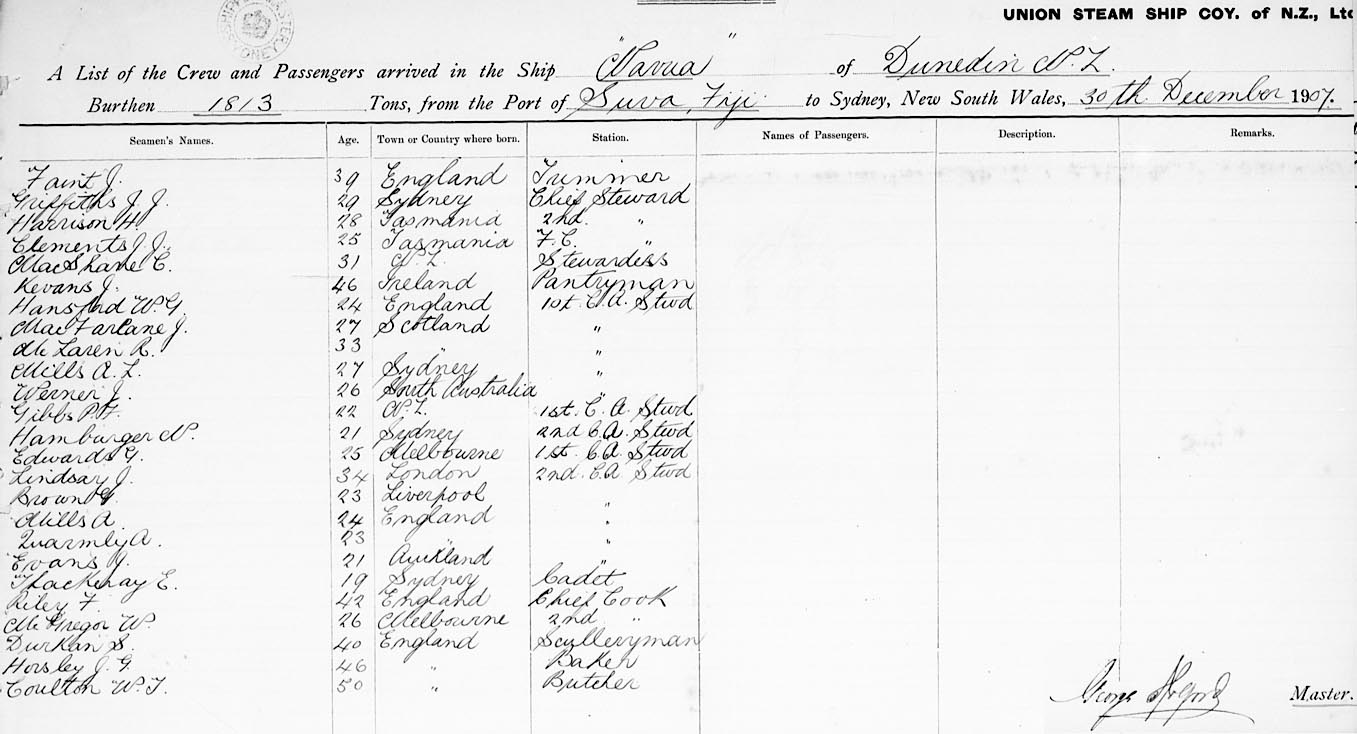 UNION STEAM SHIP COY. of N.Z., Ltd
A List of the Crew and Passengers arrived in the Ship "Navua" of Dunedin N.Z.
Burthen 1813 Tons, from the Port of Suva, Fiji to Sydney, New South Wales, 30th December 1907.
Seamen's Names. Age. Town or Country where born. Station. Names of Passengers. Description. Remarks.
Faint J. 39 England Trimmer
Griffiths J. J. 29 Sydney Chief Steward
Harrison H. 28 Tasmania 2nd. "
Clements J. J. 25 Tasmania F.C. "
MacShane C. 31 N.Z. Stewardess
Kevans J. 46 Ireland Pantryman
Hansford W. G. 24 England 1st. C. A. Stwd
MacFarlane J. 27 Scotland "
McLaren R. 33 " "
Mills A. L. 27 Sydney "
Werner J. 26 South Australia "
Gibbs 22 N.Z. 1st. C. A. Stwd
Hamburger N. 21 Sydney 2nd C.A. Stwd
Edwards G. 25 Melbourne 1st. C.A. Stwd
Lindsay J. 34 London 2nd. C.A. Stwd
Brown G. 23 Liverpool "
Mills A 24 England "
Quarmby A. 23 " "
Evans J. 21 Auckland "
Thackeray E. 19 Sydney Cadet
Riley F. 42 England Chief Cook
McGregor W. 26 Melbourne 2nd "
Durkan S. 40 England Sculleryman
Horsley J. G. 46 " Baker
Coulton W. T. 50 " Butcher
George Master.